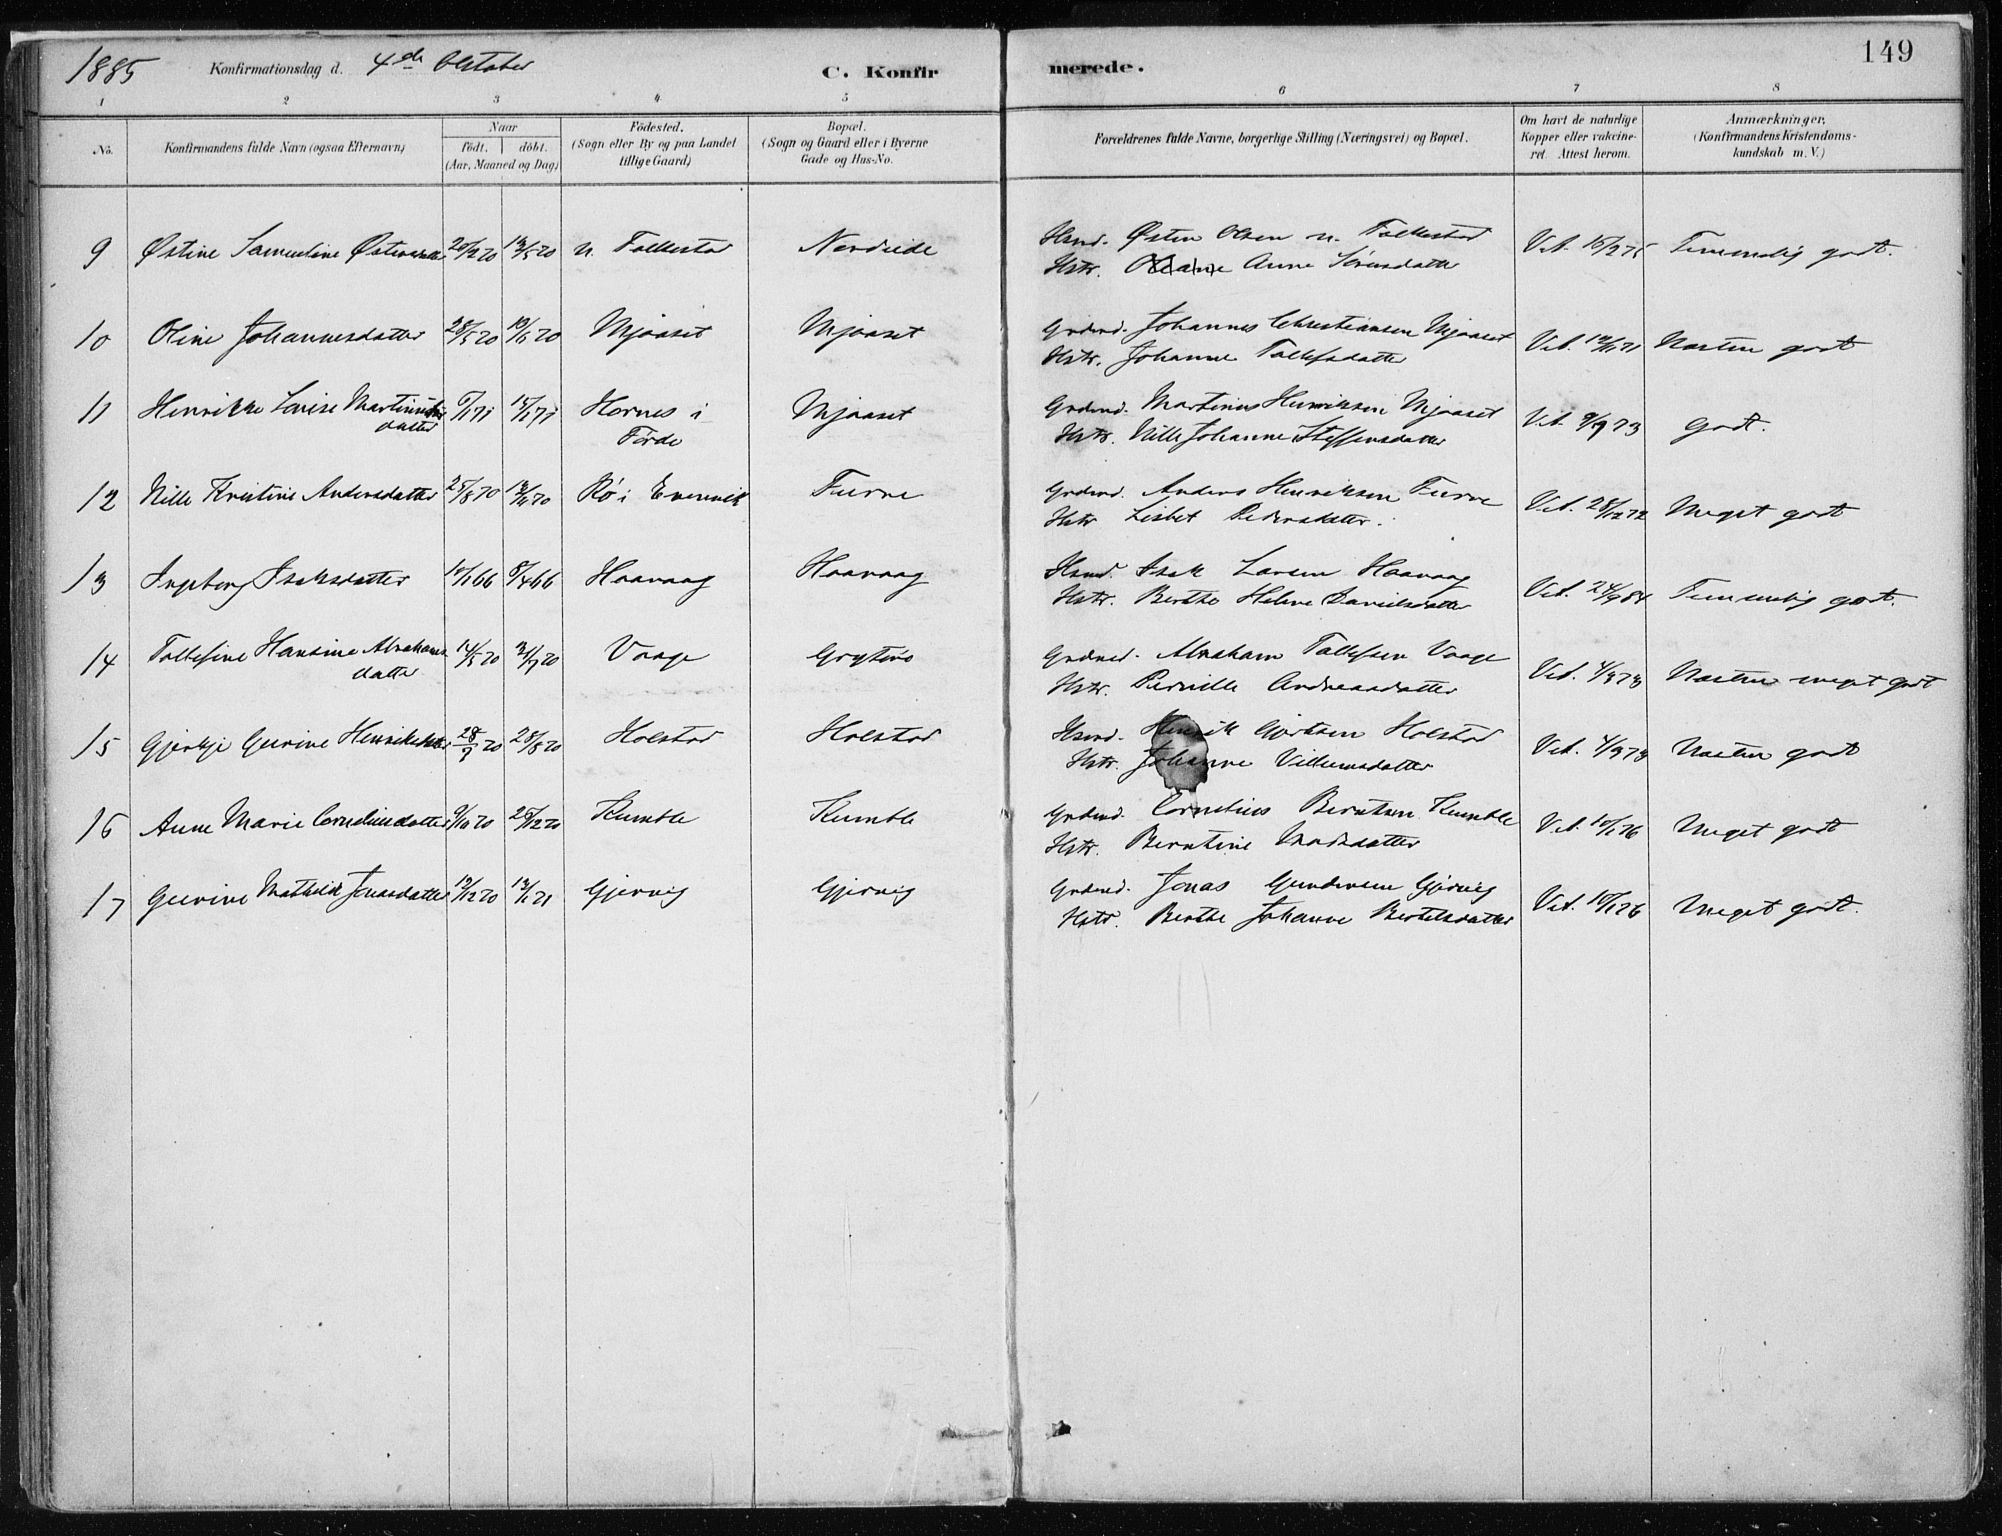 149
1885 Konfirmationsdag d. 4de Oktober C. Konfirmerede.
1 2 3 4 5 6 7 8
No. Konfirmandens fulde Navn (ogsaa Efternavn) Naar født. døbt. (Aar, Maaned og Dag) Fødested. (Sogn eller By og paa Landet tillige Gaard) Bopæl. (Sogn og Gaard eller i Byerne Gade og Hus-No. Forældrenes fulde Navne, borgerlige Stilling (Næringsvei) og Bopæl. Om havt de naturlige Kopper eller vakcineret. Attest herom. Anmærkninger, (Konfirmandens Kristendomskundskab m. V.)
9 Østine Samueline 20/2 70 13/5 70 n. Folkestad Nordeide Hsmd. Østen Olsen n. Folkestad Vet. Temmelig godt.
Hstr. Anne Sørensdatter
10 Oline Johannesdatter 28/5 70 19/6 70 Mjaaset Mjaaset Grdmd. Johannes Christiansen Mjaaset Vet. Næsten godt
Hstr. Johanne Tollefsdatter
11 Henrikke Lovise Martinus 6/1 71 15/1 71 Hornes i Mjaaset Grdmd. Martinus Henriksen Mjaaset Vet. 9/9 73 godt.
datter Førde Hstr. Nille Johanne Steffensdatter
12 Nille Kristine Andersdatter 25/8 70 Rø i Evenvik Furne Grdmd. Anders Henriksen Furne Vet. 28/12 72 Meget godt
Hstr Lisbet Pedersdatter.
13 Ingeborg Isaksdatter 10/1 66 8/4 66 Haavaag Haavaag Hsmd. Isak Larsen Haavaag Vet. 24/9 84 Temmelig godt.
Hstr. Berthe Helene Danielsdatter
14 Tollefine Hansine Abrahams 14/5 70 31/7 70 Vaage Grytins Grdmd. Abraham Tollefsen Vaage Vet. 4/9 73 Næsten meget godt
datter Hstr. Pernille Andreasdatter
15 Gjertje Gurine Henriksdatter 28/7 70 28/8 70 Holstad Holstad Hsmd. Henrik Gjertsen Holstad Vet. 4/9 73 Næsten godt
Hstr. Johanne Villumsdatter
16 Anne Marie Corneliusdatter 9/10 70 26/12 70 Kumble Kumble Grdmd. Cornelius Berntsen Kumble Vet. 10/1 76 Meget godt
Hstr. Berntine Madsdatter
17 Gurine Mathilde Jonasdatter 12/12 70 13/1 71 Gjervig Gjervig Grdmd. Jonas Gundersen Gjervig Vet. 10/1 76 Meget godt.
Hstr. Berthe Johanne Bertelsdatter